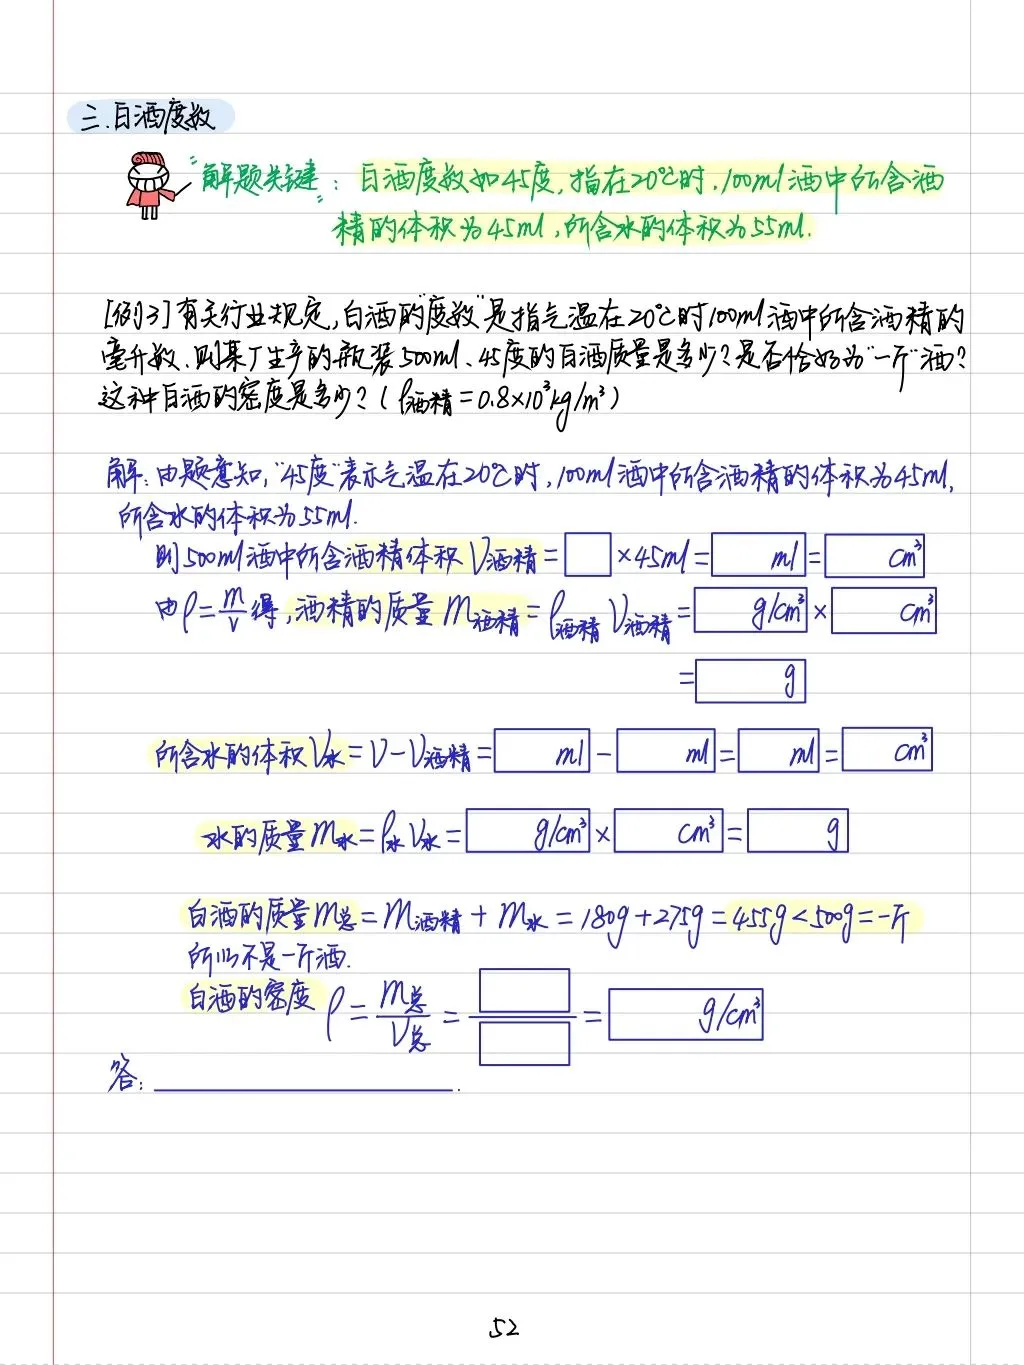 三.白酒度数
"解题关键": 白酒度数如45度,指在20℃时,100ml酒中所含酒
精的体积为45ml,所含水的体积为55ml.
[例3]有关行业规定,白酒的"度数"是指气温在20℃时100ml酒中所含酒精的
毫升数.则某厂生产的瓶装500ml、45度的白酒质量是多少?是否恰好为"一斤"酒?
这种白酒的密度是多少?(ρ酒精=0.8×10³kg/m³)
解:由题意知,"45度"表示气温在20℃时,100ml酒中所含酒精的体积为45ml,
所含水的体积为55ml.
则500ml酒中所含酒精体积 V酒精= ×45ml= ml= cm³
由ρ=m/V得,酒精的质量 m酒精=ρ酒精V酒精= g/cm³× cm³
= g
所含水的体积V水=V-V酒精= ml- ml= ml= cm³
水的质量m水=ρ水V水= g/cm³× cm³= g
白酒的质量m总=m酒精+m水=180g+275g=455g<500g=一斤
所以不是一斤酒.
白酒的密度 ρ=m总/V总= = g/cm³
答: .
52